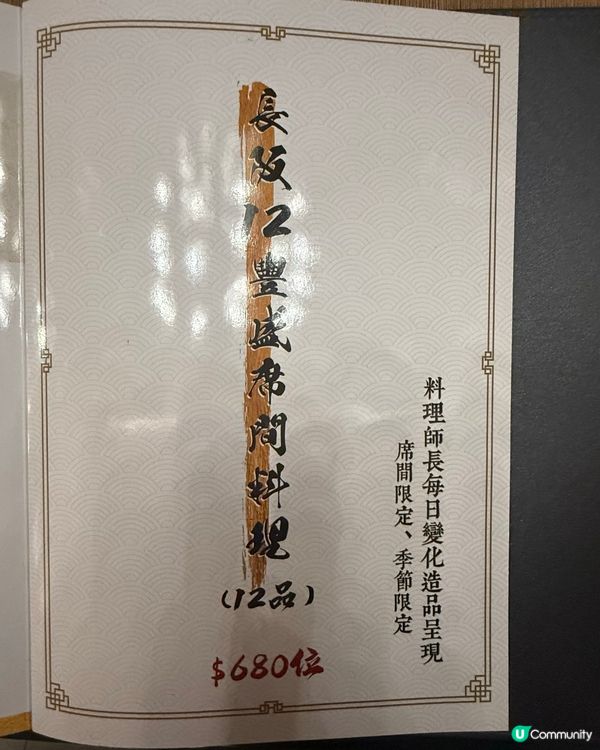 長阪12豐盛席間料理
(12品)
$680位
料理師長每日變化造品呈現
席間限定、季節限定
U Community